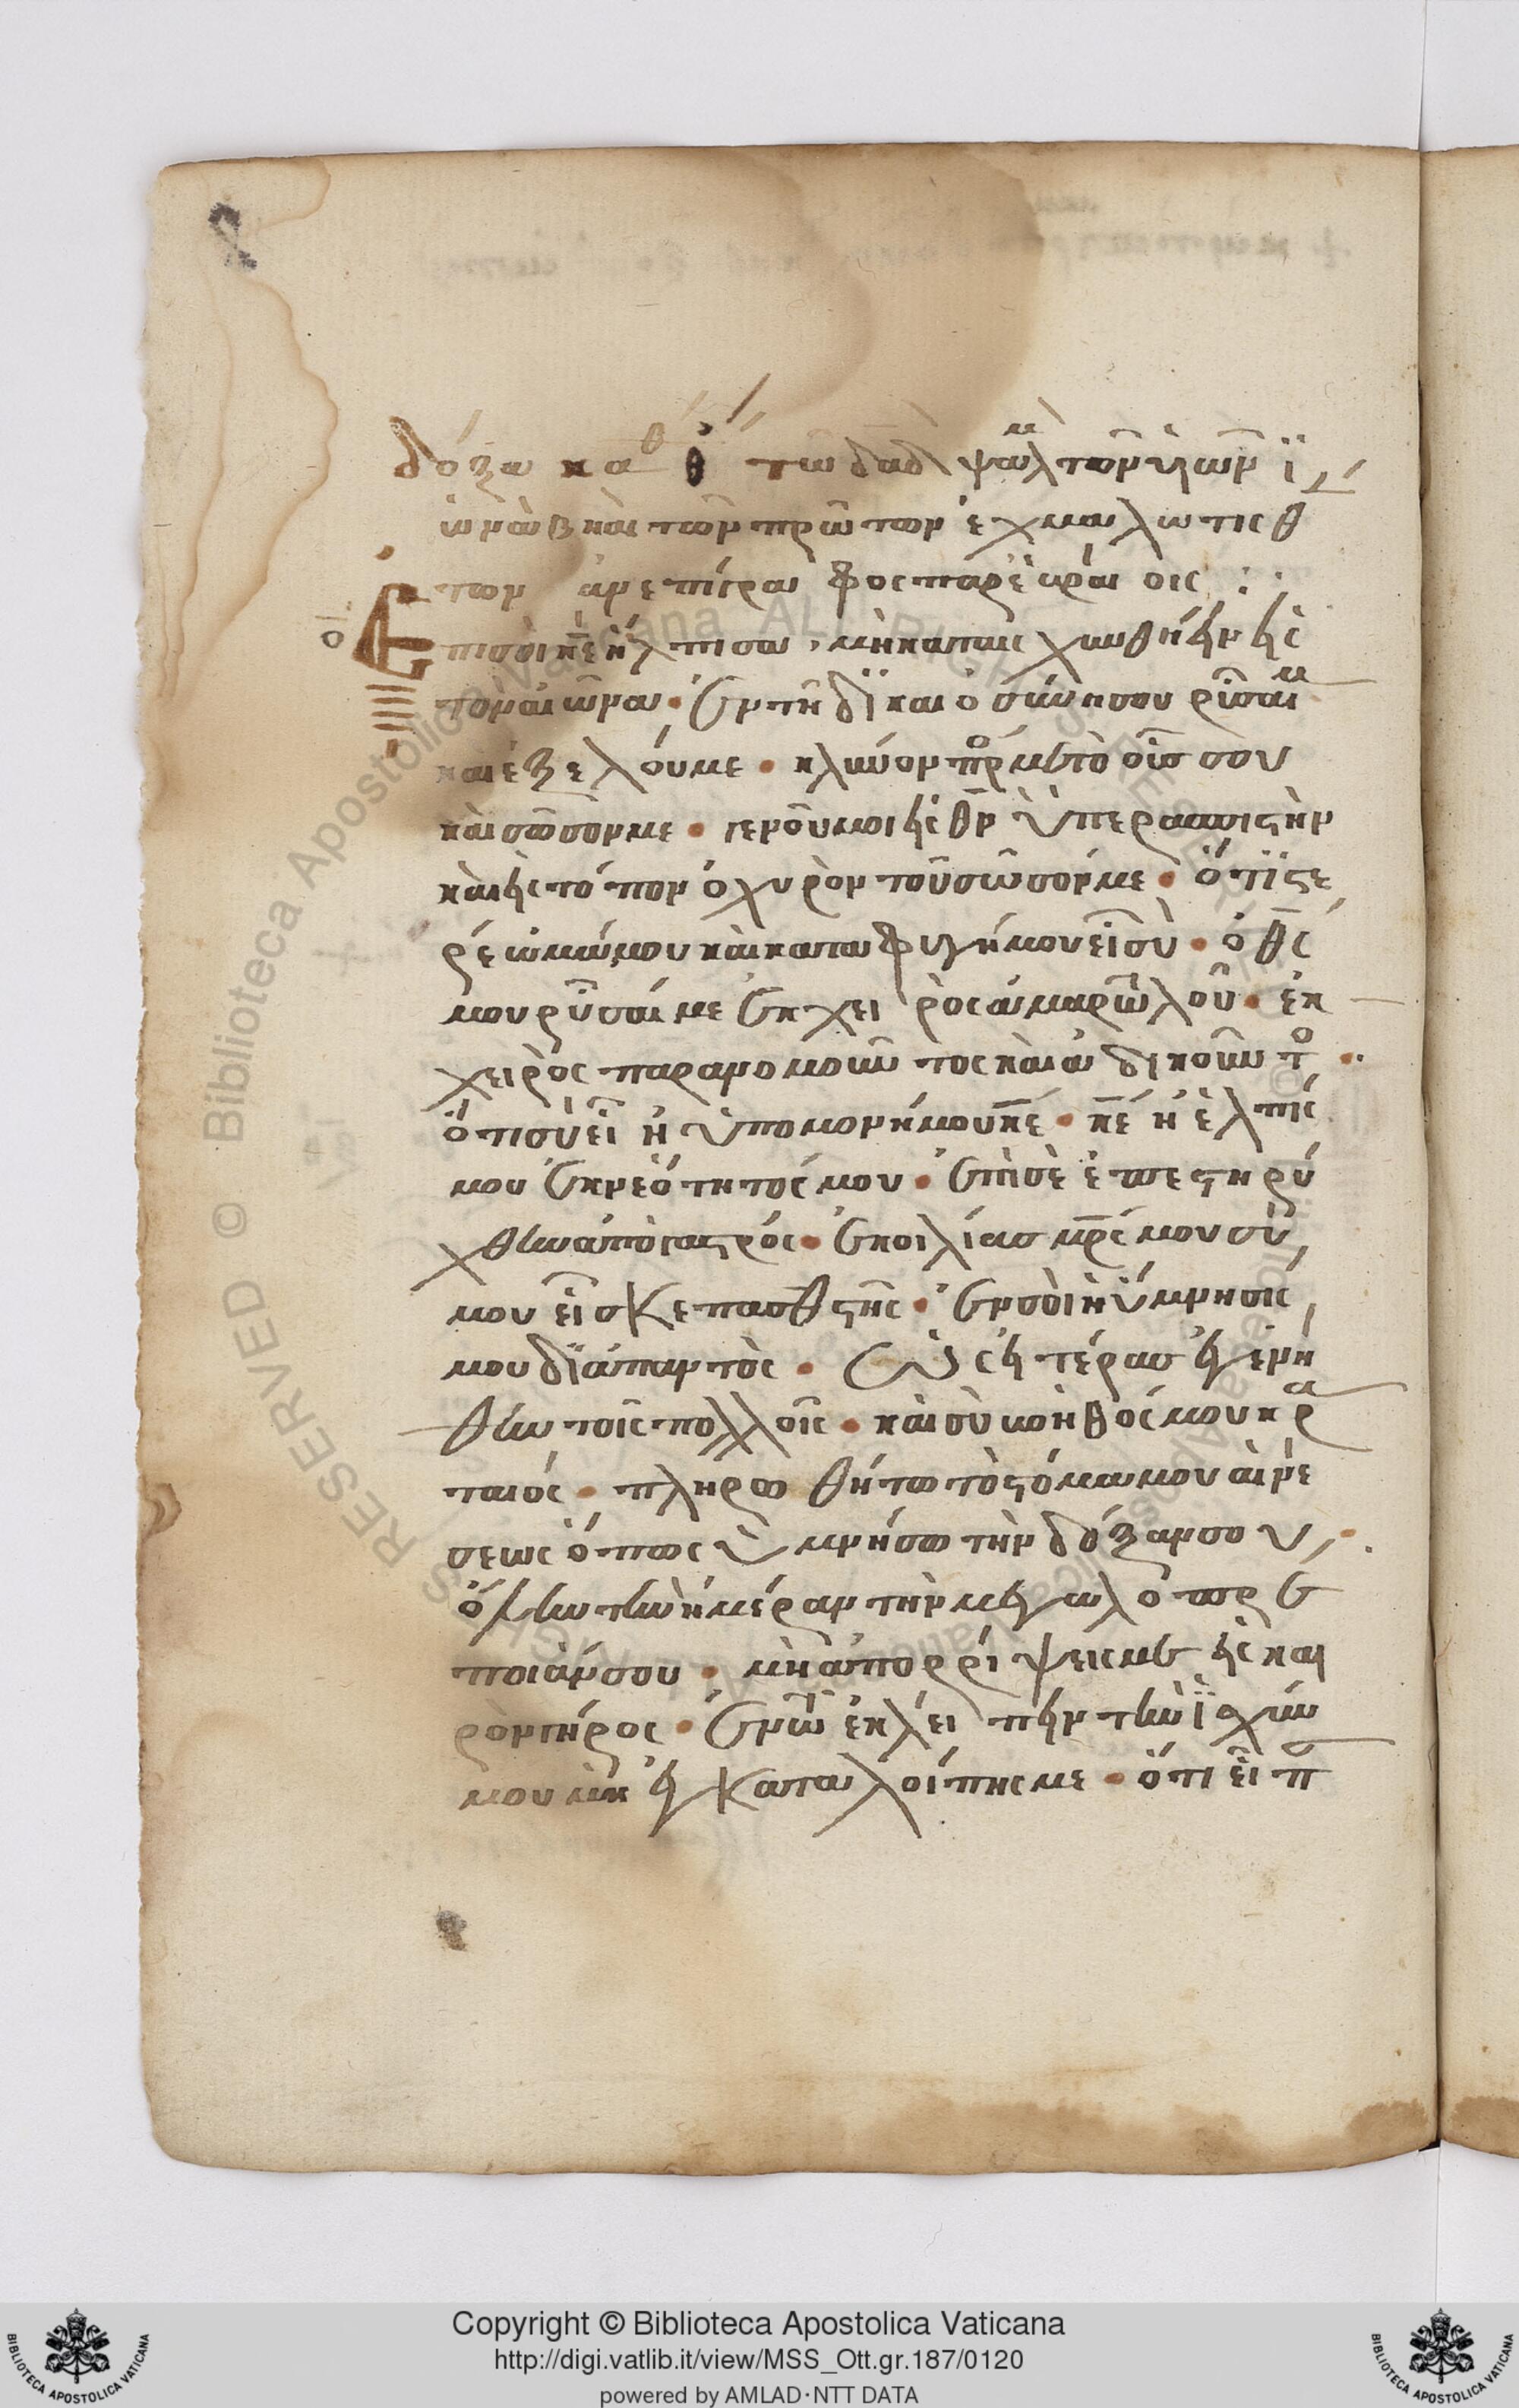 δόξα κα θ τῶ δαδ ψαλμ τῶν υἱῶν ϊ
ωναὰβ καὶ τῶν πρώτων ἐχμαλωτισθ
των ἀνεπίγραφος παρεὑραίοις :
Επισοὶ κε ήλπισα, μὴ καταισχυνθήην εἰς
τὸν αἰῶνα · ἐν τῆ δϊκαιοσύνησου ρῖσαιμ
καὶ ἐξελούμε · κλινον πρόμετὸ οὖσ σου
καὶ σῶσονμε · γενοῦ μοι εἰς θν ὑπερασπιστὴν
καὶ εἰς τόπον ὀχυρὸν τοῦ σῶσόν με · ὅτϊ στε
ρέωμά μου καὶ καταφυγή μου εἶ σὺ · ὁ θς
μου ρῦσαί με ἐκ χειρὸς ἁμαρτωλοῦ · ἐκ
χειρὸς παρανομοῦντος καὶ ἀδικοῦντο ··
ὅτι σὺ εἶ ἡ ὑπομονή μου κε · κε ἡ ἐλπίς
μου ἐκ νεότητός μου · ἐπὶ σὲ ἐπεστηρύ
χθην ἀπὸ γαστρός · ἐκ κοιλίας μρς μου σύ
μου εἶ σκεπαστης · ἐν σοὶ ἡ ὕμνησίς
μου δϊάπαντὸς · ὡσεὶ τέρας ἐγενή
θην τοῖς πολλοῖς · καὶ σὺ βοηθός μου κρα
ταιός · πληρωθήτω τὸ στόμα μου αἰνέ
σεως ὅπως ὑμνήσω τὴν δόξαν σου ·
ὅλην τὴν ἡμέραν τὴν μεγαλοπρε
ποιάν σου · μὴ ἀπορρίψεις με εἰς και
ρὸν γήρος · ἐν τῶ ἐκλείπειν τὴν ϊσχύν
μου μὴ ἐγκαταλοίπης με · ὅτι εἶπ
Copyright © Biblioteca Apostolica Vaticana
http://digi.vatlib.it/view/MSS_Ott.gr.187/0120
powered by AMLAD·NTT DATA